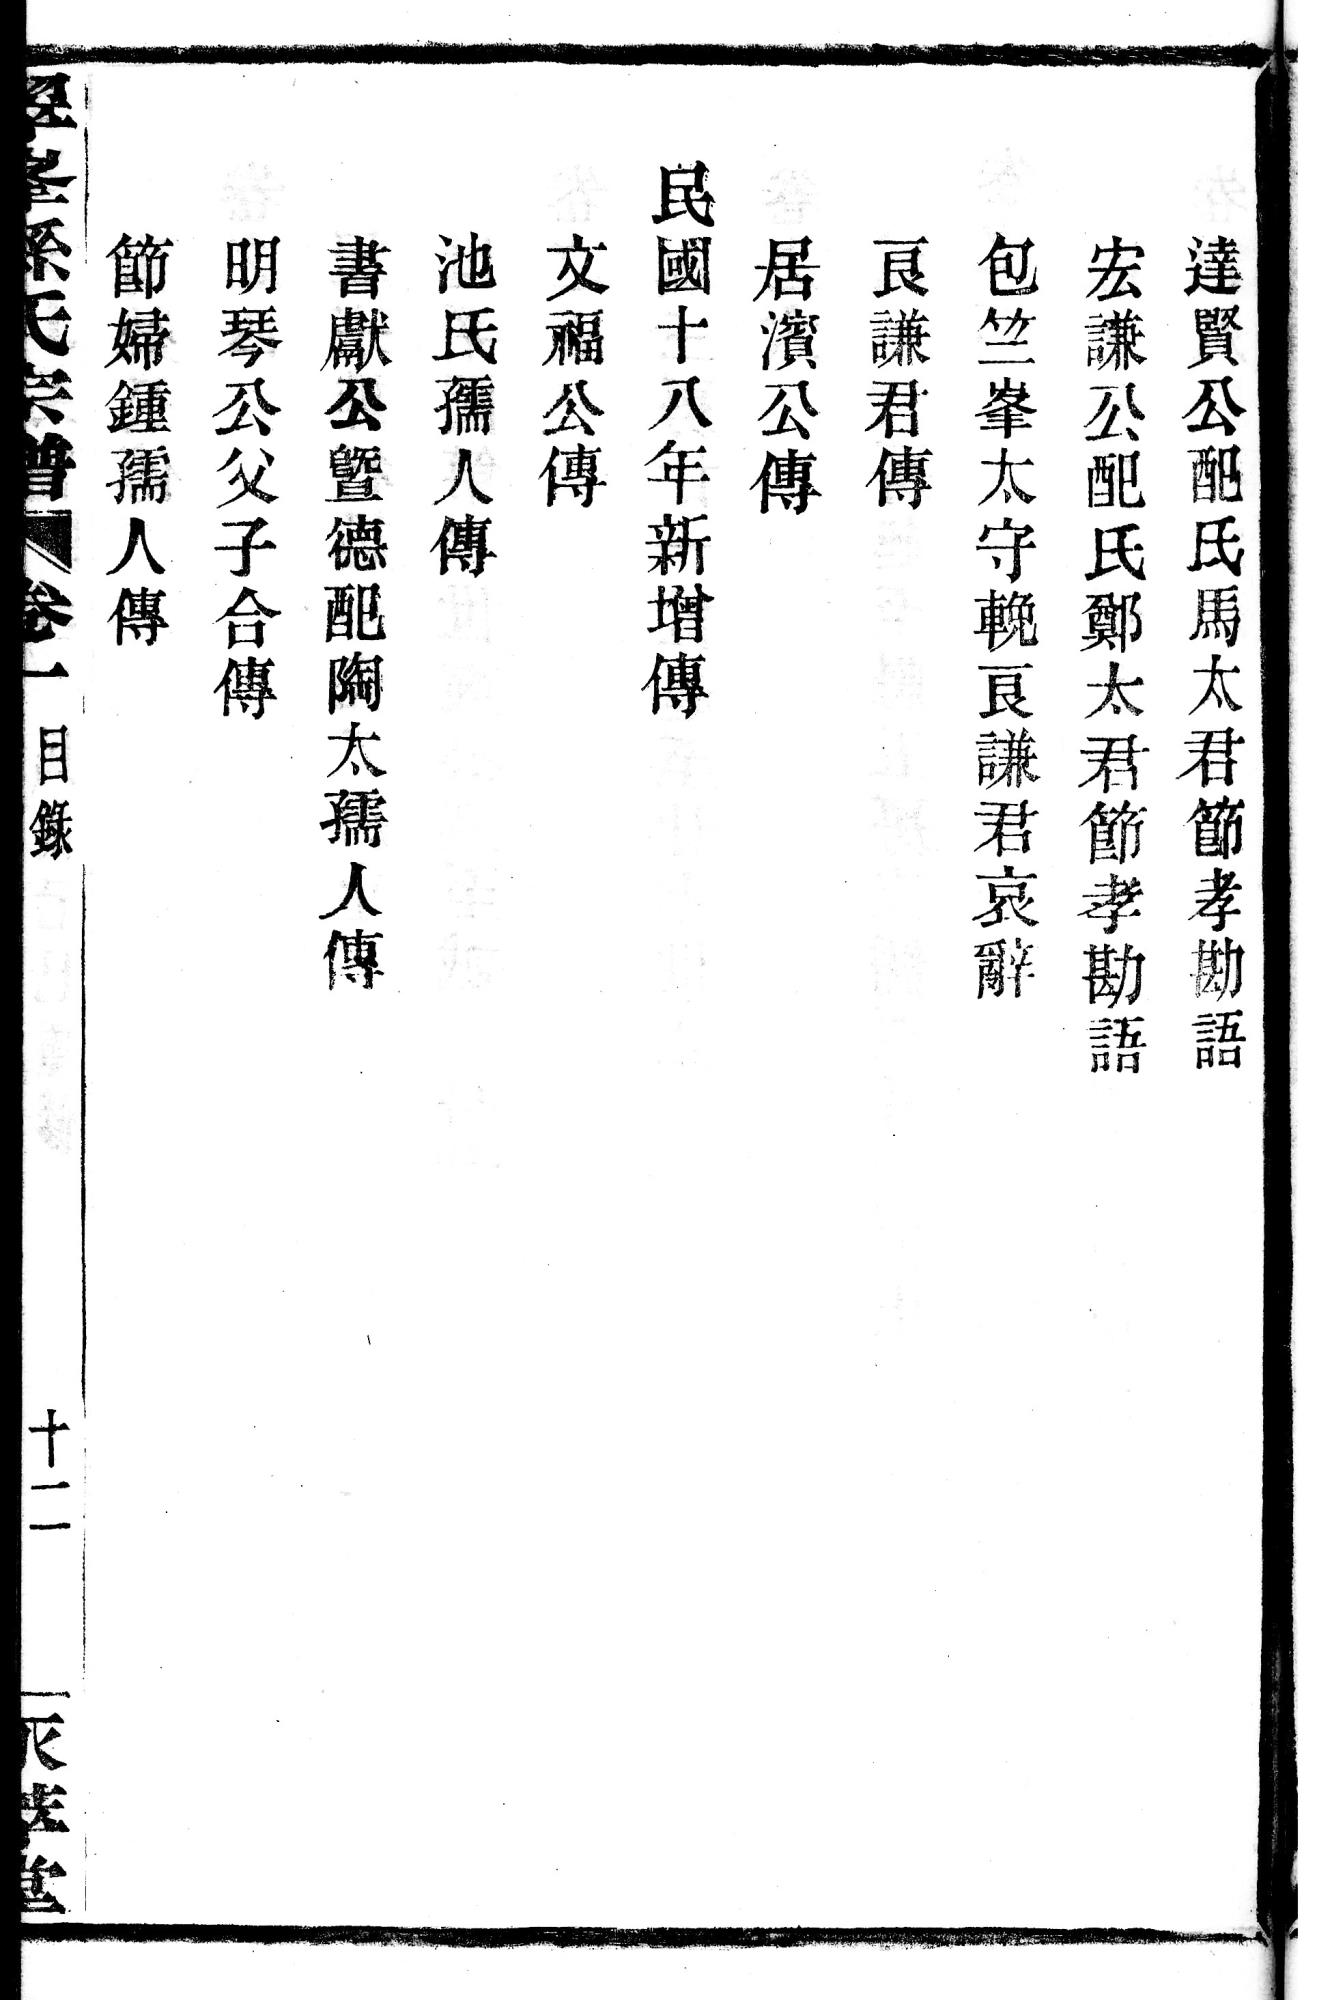 達賢公配氏馬太君節孝勘語
宏謙公配氏鄭太君節孝勘語
包竺峯太守輓艮謙君哀辭
艮謙君傳
居濱公傳
民國十八年新增傳
文福公傳
池氏孺人傳
書獻公曁德配陶太孺人傳
明琴公父子合傳
節婦鍾孺人傳
峯孫氏宗譜 卷一 目錄 十二 堂